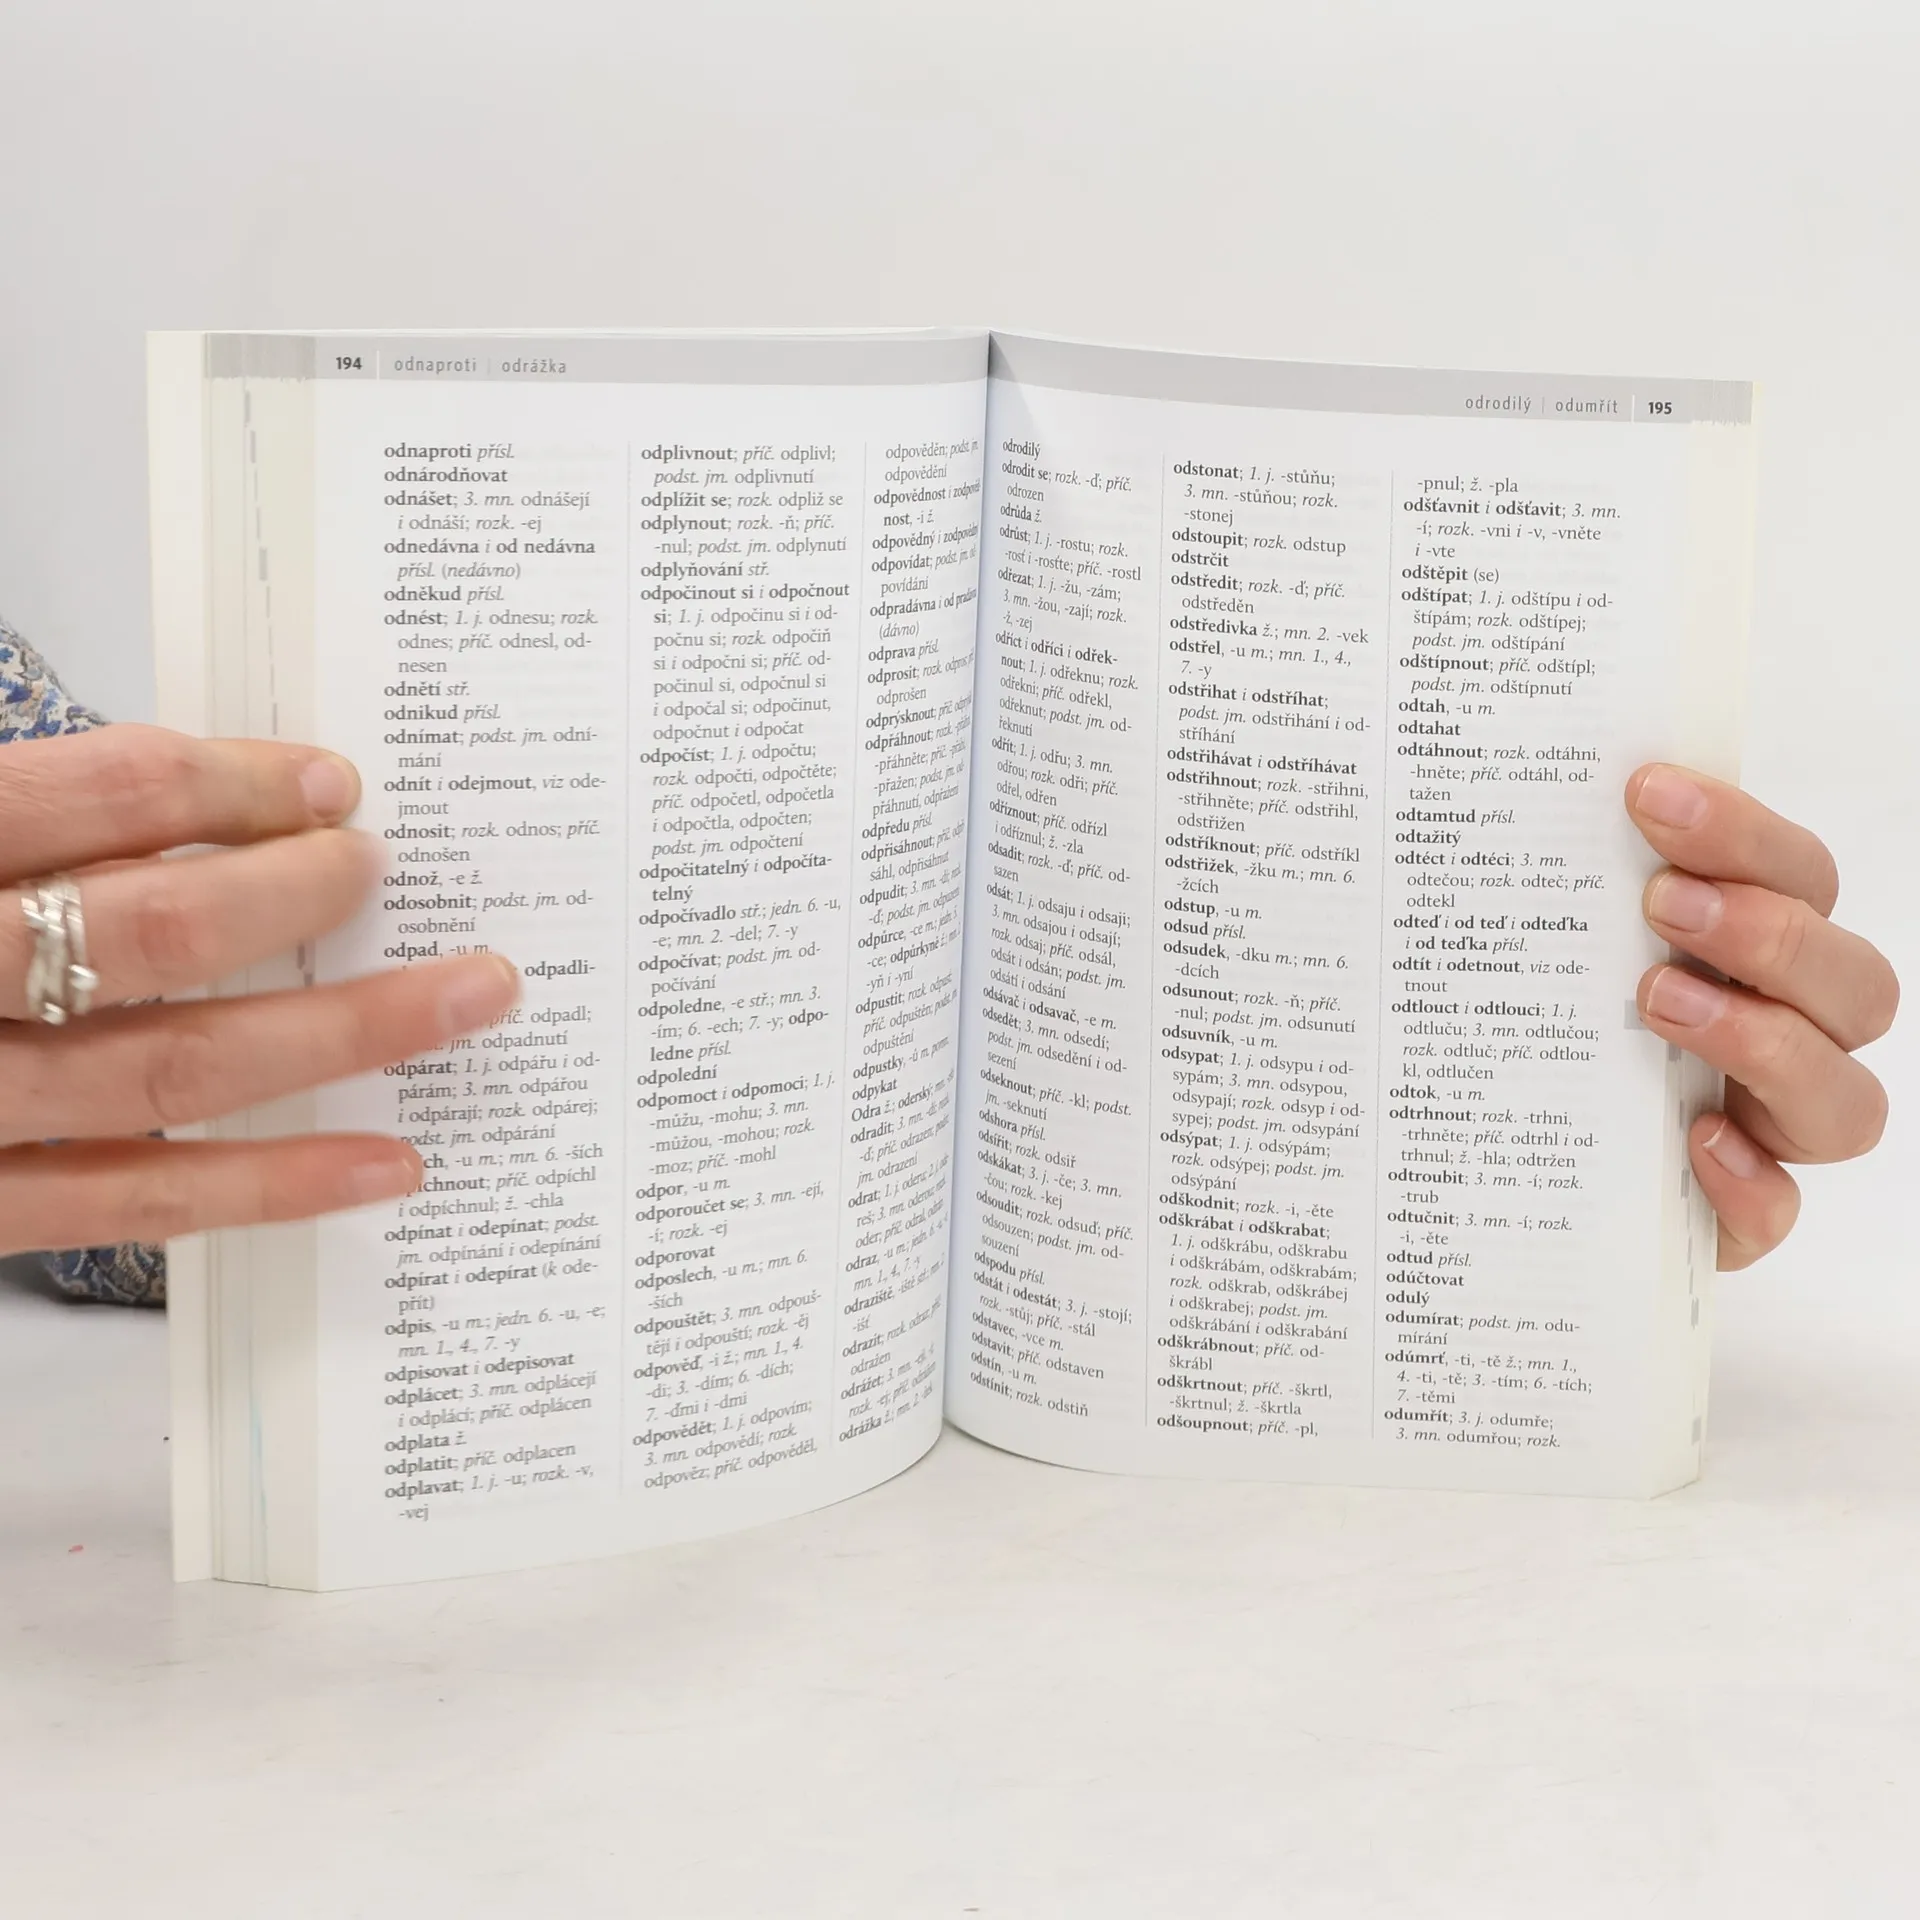 194 | odnaproti | odrážka
odnaproti přísl.
odnárodňovat
odnášet; 3. mn. odnášejí
i odnáší; rozk. -ej
odnedávna i od nedávna
přísl. (nedávno)
odněkud přísl.
odnést; 1. j. odnesu; rozk.
odnes; příč. odnesl, od-
nesen
odnětí stř.
odnikud přísl.
odnímat; podst. jm. odní-
mání
odnít i odejmout, viz ode-
jmout
odnosit; rozk. odnos; příč.
odnošen
odnož, -e ž.
odosobnit; podst. jm. od-
osobnění
odpad, -u m.
odpadli-
příč. odpadl;
jm. odpadnutí
odpárat; 1. j. odpářu i od-
párám; 3. mn. odpářou
i odpárají; rozk. odpárej;
podst. jm. odpárání
-u m.; mn. 6. -ších
příč. odpíchl
i odpíchnul; ž. -chla
odpínat i odepínat; podst.
jm. odpínání i odepínání
odpírat i odepírat (k ode-
přít)
odpis, -u m.; jedn. 6. -u, -e;
mn. 1., 4., 7. -y
odpisovat i odepisovat
odplácet; 3. mn. odplácejí
i odplácí; příč. odplácen
odplata ž.
odplatit; příč. odplacen
odplavat; 1. j. -u; rozk. -v,
-vej
odplivnout; příč. odplivl;
podst. jm. odplivnutí
odplížit se; rozk. odpliž se
odplynout; rozk. -ň; příč.
-nul; podst. jm. odplynutí
odplyňování stř.
odpočinout si i odpočnout
si; 1. j. odpočinu si i od-
počnu si; rozk. odpočiň
si i odpočni si; příč. od-
počinul si, odpočnul si
i odpočal si; odpočinut,
odpočnut i odpočat
odpočíst; 1. j. odpočtu;
rozk. odpočti, odpočtěte;
příč. odpočetl, odpočetla
i odpočtla, odpočten;
podst. jm. odpočtení
odpočitatelný i odpočíta-
telný
odpočívadlo stř.; jedn. 6. -u,
-e; mn. 2. -del; 7. -y
odpočívat; podst. jm. od-
počívání
odpoledne, -e stř.; mn. 3.
-ím; 6. -ech; 7. -y; odpo-
ledne přísl.
odpolední
odpomoct i odpomoci; 1. j.
-můžu, -mohu; 3. mn.
-můžou, -mohou; rozk.
-moz; příč. -mohl
odpor, -u m.
odporoučet se; 3. mn. -ejí,
-í; rozk. -ej
odporovat
odposlech, -u m.; mn. 6.
-ších
odpouštět; 3. mn. odpouš-
tějí i odpouští; rozk. -ěj
odpověď, -i ž.; mn. 1., 4.
-di; 3. -dím; 6. -dích;
7. -ďmi i -dmi
odpovědět; 1. j. odpovím;
3. mn. odpovědí; rozk.
odpověz; příč. odpověděl,
odpověděn; podst. jm.
odpovědění
odpovědnost i zodpověd-
nost, -i ž.
odpovědný i zodpovědný
odpovídat; podst. jm. od-
povídání
odpradávna i od pradávna
(dávno)
odprava přísl.
odprosit; rozk. odpros; příč.
odprošen
odprýsknout; příč. odprýskl
odpřáhnout; rozk. -přáhni,
-přáhněte; příč. -přáhl,
-přažen; podst. jm. od-
přáhnutí, odpřažení
odpředu přísl.
odpřisáhnout; příč. odpři-
sáhl, odpřisáhnut
odpudit; 3. mn. -dí; rozk.
-ď; podst. jm. odpuzení
odpůrce, -ce m.; jedn. 5.
-ce; odpůrkyně ž.; mn. 2.
-yň i -yní
odpustit; rozk. odpusť;
příč. odpuštěn; podst. jm.
odpuštění
odpustky, -ů m. pomn.
odpykat
Odra ž.; oderský; mn.
odradit; 3. mn. -dí; rozk.
-ď; příč. odrazen; podst.
jm. odrazení
odrat; 1. j. oderu; 2. j. ode-
reš; 3. mn. oderou; rozk.
oder; příč. odral, odrán
odraz, -u m.; jedn. 6. -u, -e;
mn. 1., 4., 7. -y
odraziště, -iště stř.; mn. 2.
-išť
odrazit; rozk. odraz; příč.
odražen
odrážet; 3. mn. -ejí, -í;
rozk. -ej; příč. odrážen
odrážka ž.; mn. 2. -žek
odrodilý | odumřít | 195
odrodilý
odrodit se; rozk. -ď; příč.
odrozen
odrůda ž.
odrůst; 1. j. -rostu; rozk.
-rosť i -rosťte; příč. -rostl
odřezat; 1. j. -žu, -zám;
3. mn. -žou, -zají; rozk.
-ž, -zej
odříct i odříci i odřek-
nout; 1. j. odřeknu; rozk.
odřekni; příč. odřekl,
odřeknut; podst. jm. od-
řeknutí
odřít; 1. j. odřu; 3. mn.
odřou; rozk. odři; příč.
odřel, odřen
odříznout; příč. odřízl
i odříznul; ž. -zla
odsadit; rozk. -ď; příč. od-
sazen
odsát; 1. j. odsaju i odsaji;
3. mn. odsajou i odsají;
rozk. odsaj; příč. odsál,
odsát i odsán; podst. jm.
odsátí i odsání
odsávač i odsavač, -e m.
odsedět; 3. mn. odsedí;
podst. jm. odsedění i od-
sezení
odseknout; příč. -kl; podst.
jm. -seknutí
odshora přísl.
odsířit; rozk. odsiř
odskákat; 3. j. -če; 3. mn.
-čou; rozk. -kej
odsoudit; rozk. odsuď; příč.
odsouzen; podst. jm. od-
souzení
odspodu přísl.
odstát i odestát; 3. j. -stojí;
rozk. -stůj; příč. -stál
odstavec, -vce m.
odstavit; příč. odstaven
odstín, -u m.
odstínit; rozk. odstiň
odstonat; 1. j. -stůňu;
3. mn. -stůňou; rozk.
-stonej
odstoupit; rozk. odstup
odstrčit
odstředit; rozk. -ď; příč.
odstředěn
odstředivka ž.; mn. 2. -vek
odstřel, -u m.; mn. 1., 4.,
7. -y
odstřihat i odstříhat;
podst. jm. odstřihání i od-
stříhání
odstřihávat i odstříhávat
odstřihnout; rozk. -střihni,
-střihněte; příč. odstřihl,
odstřižen
odstříknout; příč. odstříkl
odstřižek, -žku m.; mn. 6.
-žcích
odstup, -u m.
odsud přísl.
odsudek, -dku m.; mn. 6.
-dcích
odsunout; rozk. -ň; příč.
-nul; podst. jm. odsunutí
odsuvník, -u m.
odsypat; 1. j. odsypu i od-
sypám; 3. mn. odsypou,
odsypají; rozk. odsyp i od-
sypej; podst. jm. odsypání
odsýpat; 1. j. odsýpám;
rozk. odsýpej; podst. jm.
odsýpání
odškodnit; rozk. -i, -ěte
odškrábat i odškrabat;
1. j. odškrábu, odškrabu
i odškrábám, odškrabám;
rozk. odškrab, odškrábej
i odškrabej; podst. jm.
odškrábání i odškrabání
odškrábnout; příč. od-
škrábl
odškrtnout; příč. -škrtl,
-škrtnul; ž. -škrtla
odšoupnout; příč. -pl,
-pnul; ž. -pla
odšťavnit i odšťavit; 3. mn.
-í; rozk. -vni i -v, -vněte
i -vte
odštěpit (se)
odštípat; 1. j. odštípu i od-
štípám; rozk. odštípej;
podst. jm. odštípání
odštípnout; příč. odštípl;
podst. jm. odštípnutí
odtah, -u m.
odtahat
odtáhnout; rozk. odtáhni,
-hněte; příč. odtáhl, od-
tažen
odtamtud přísl.
odtažitý
odtéct i odtéci; 3. mn.
odtečou; rozk. odteč; příč.
odtekl
odteď i od teď i odteďka
i od teďka přísl.
odtít i odetnout, viz ode-
tnout
odtlouct i odtlouci; 1. j.
odtluču; 3. mn. odtlučou;
rozk. odtluč; příč. odtlou-
kl, odtlučen
odtok, -u m.
odtrhnout; rozk. -trhni,
-trhněte; příč. odtrhl i od-
trhnul; ž. -hla; odtržen
odtroubit; 3. mn. -í; rozk.
-trub
odtučnit; 3. mn. -í; rozk.
-i, -ěte
odtud přísl.
odúčtovat
odulý
odumírat; podst. jm. odu-
mírání
odúmrť, -ti, -tě ž.; mn. 1.,
4. -ti, -tě; 3. -tím; 6. -tích;
7. -těmi
odumřít; 3. j. odumře;
3. mn. odumřou; rozk.